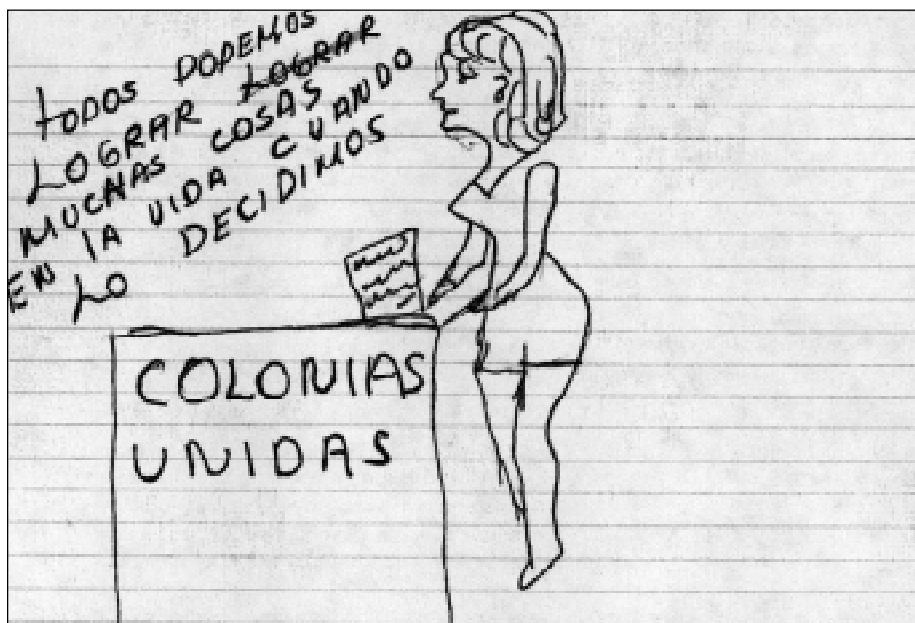 TODOS PODEMOS
LOGRAR LOGRAR
MUCHAS COSAS
EN LA VIDA CUANDO
LO DECIDIMOS
COLONIAS
UNIDAS